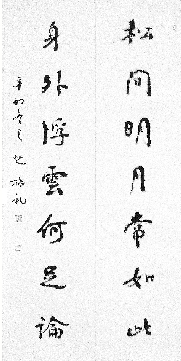 松間明月常如此
身外浮雲何足論
辛卯